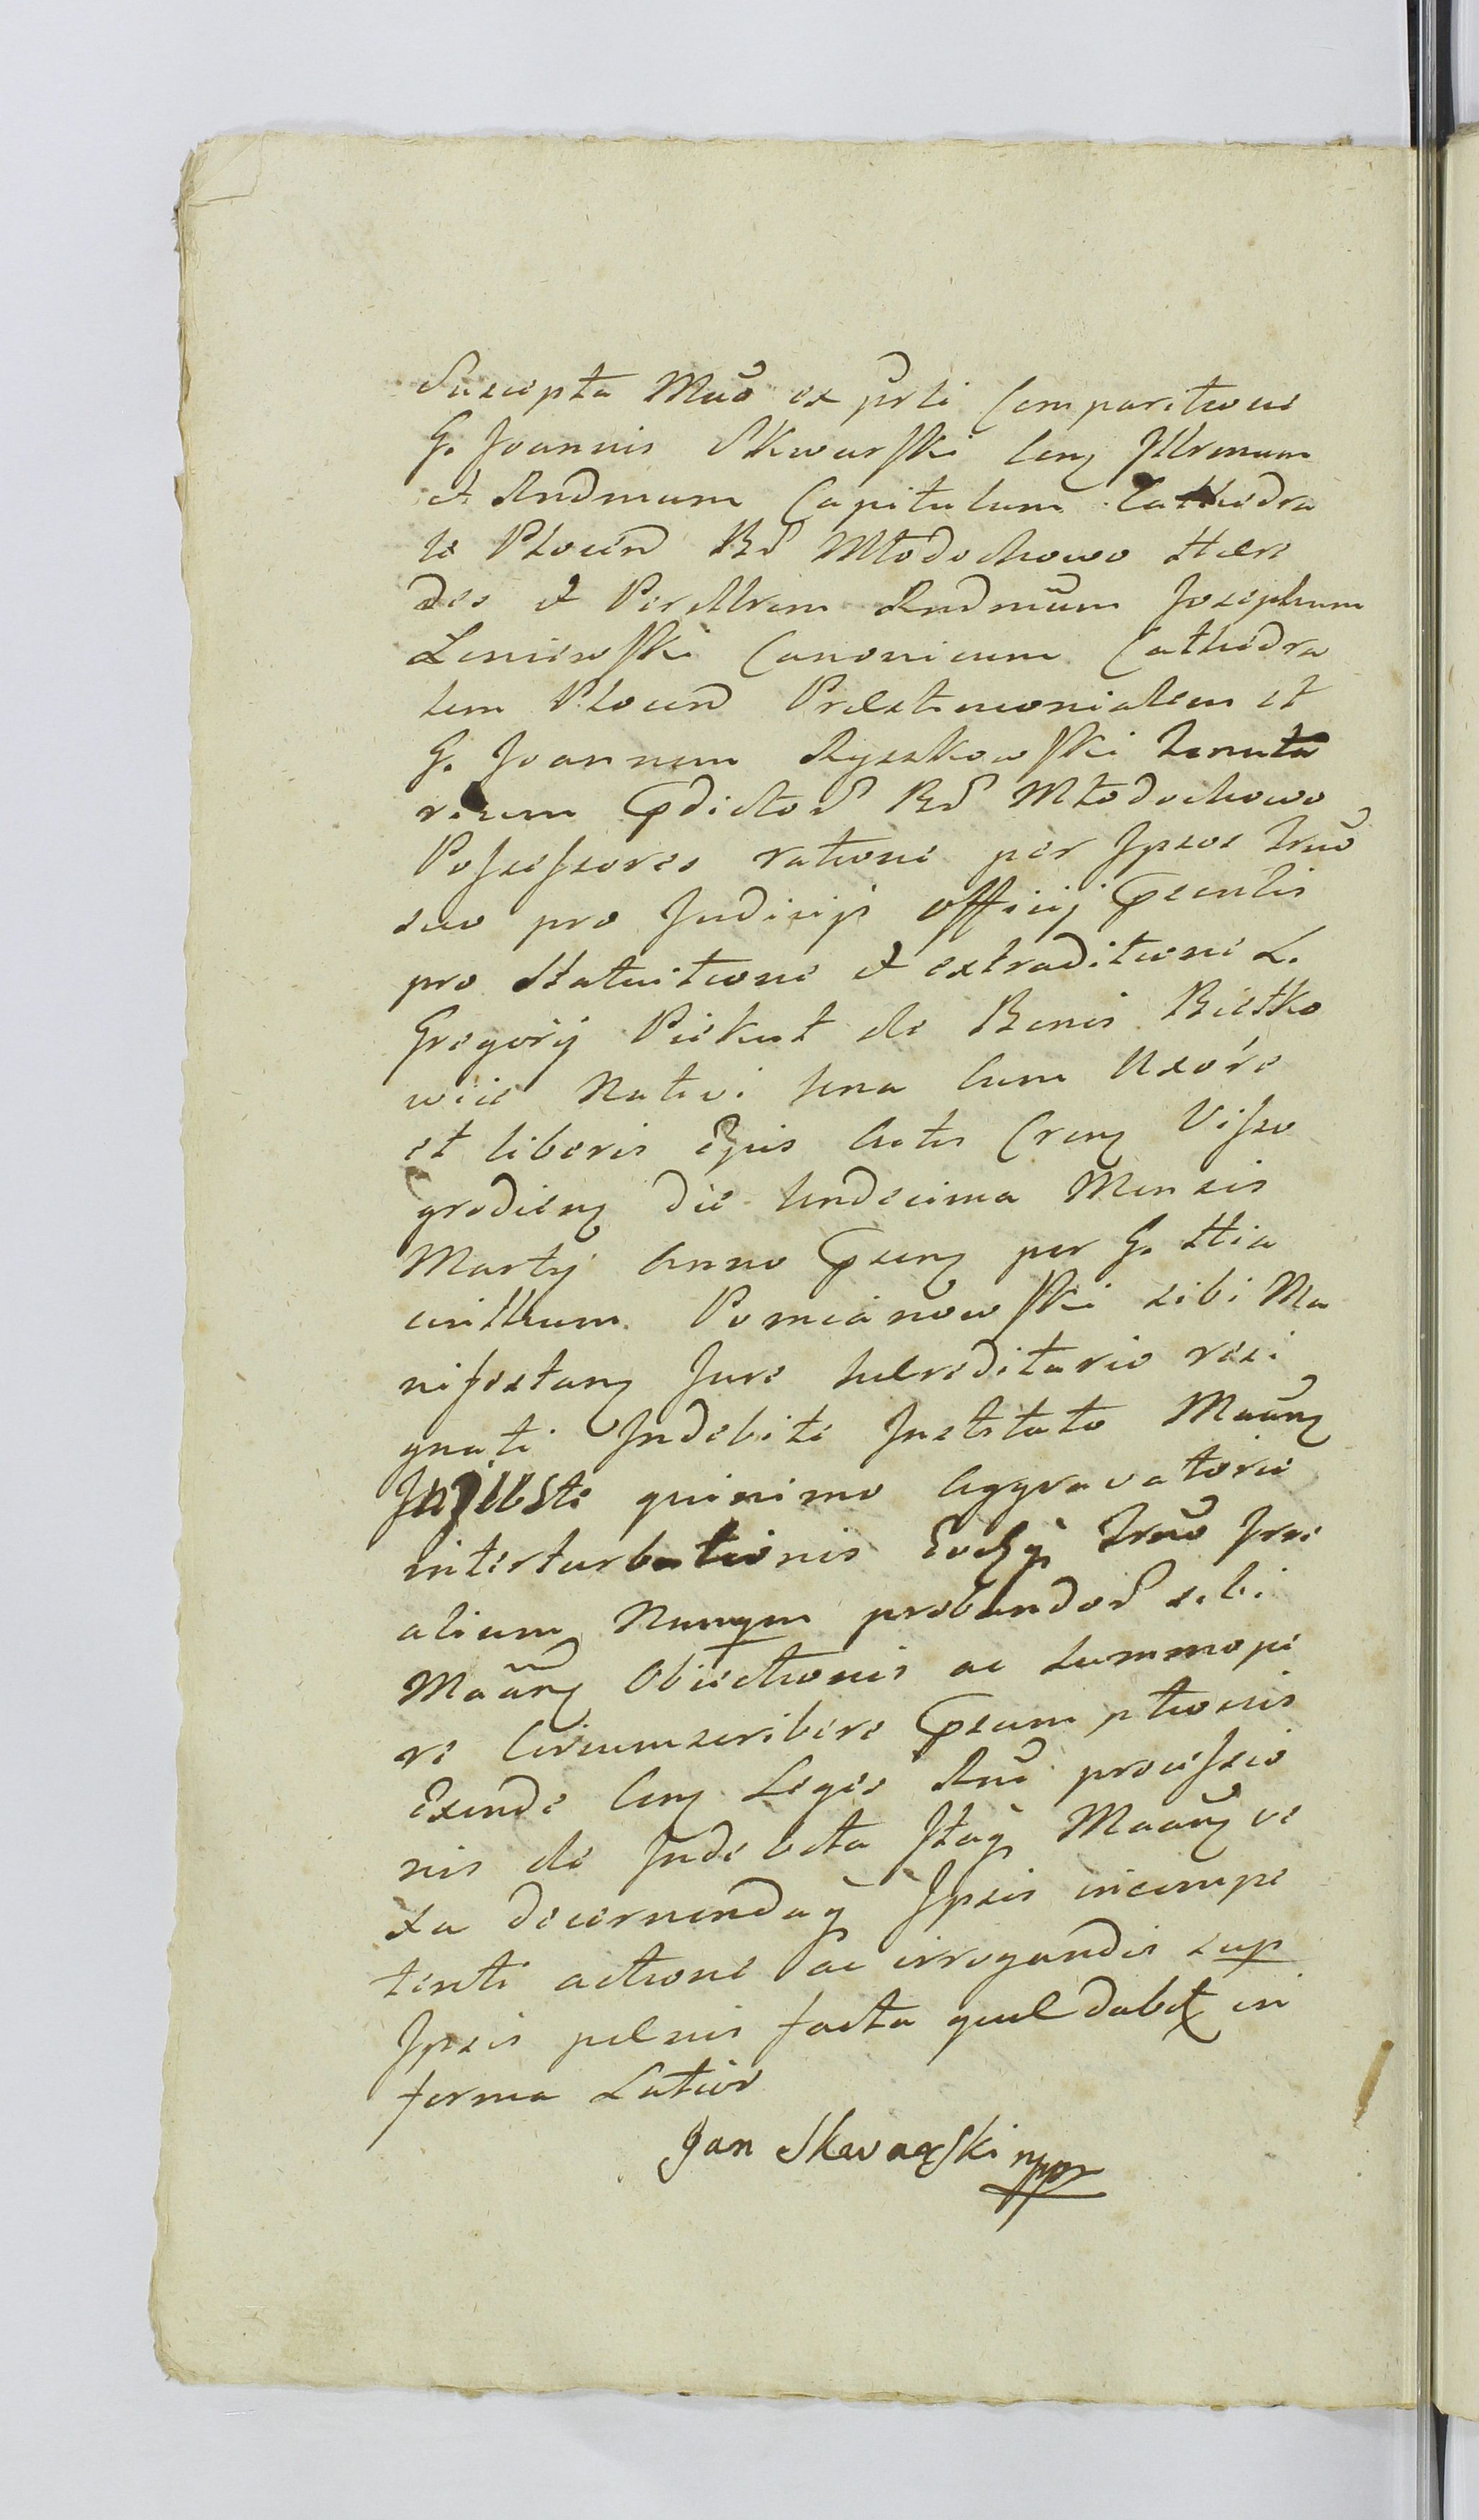 Suscepta Mão ex prti Comparitione
G. Joannis Skwarski Cong Illrmum
et Rndmum Capitulum Cathedra
le Plocen Bd Młodochowo Hære
des et Perillrem Rndmum Josephum
Leniewski Canonicum Cathedra
lem Plocen Præstimonialem et
G. Joannem Ryszkowski Tenuta
rium Pdictor Br Młodochowo
Possessores ratione per Ipsos Trmo
suo pro Judicijs Officij Psentis
pro Statuitione et extraditione L.
Gregorij Piekut de Bonis Bielko
wice Nativi una Cum Uxore
et liberis Ejus Actis Cren Visso
grodien die Undecima Mensis
Martij Anno Psen per G. Hia
cinthum Pomianowski sibi Ma
nifestan Jure hæreditario resi
gnati Indebite Institato Maan
Injuste quinimo Aggravatorie
interturbationis Trmo
alium Nunqm probandor sibi
Maan Obiectionis ac summope
re Circumscribere Psumptionis
Exinde Con Leges Rni processio
nis de Indebita Maan ve
xa decernenda Ipsis incompe
tenti actione ac irrogandis sup
Ipsis pœnis facta quæ dabit in
forma Latior
Jan Skwarski mpr